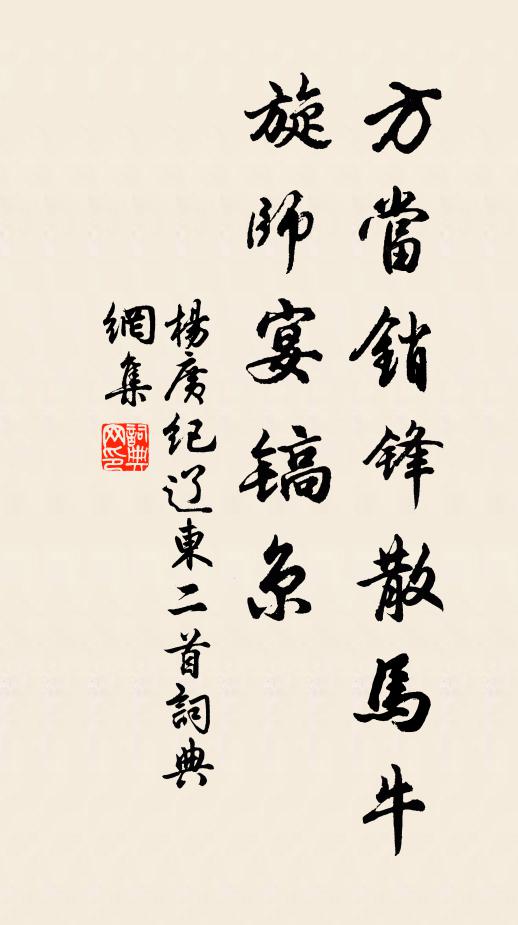 方當銷鋒散馬牛
旋師宴镐京
楊廣纪辽東二首詞典
網集
詞典
网印